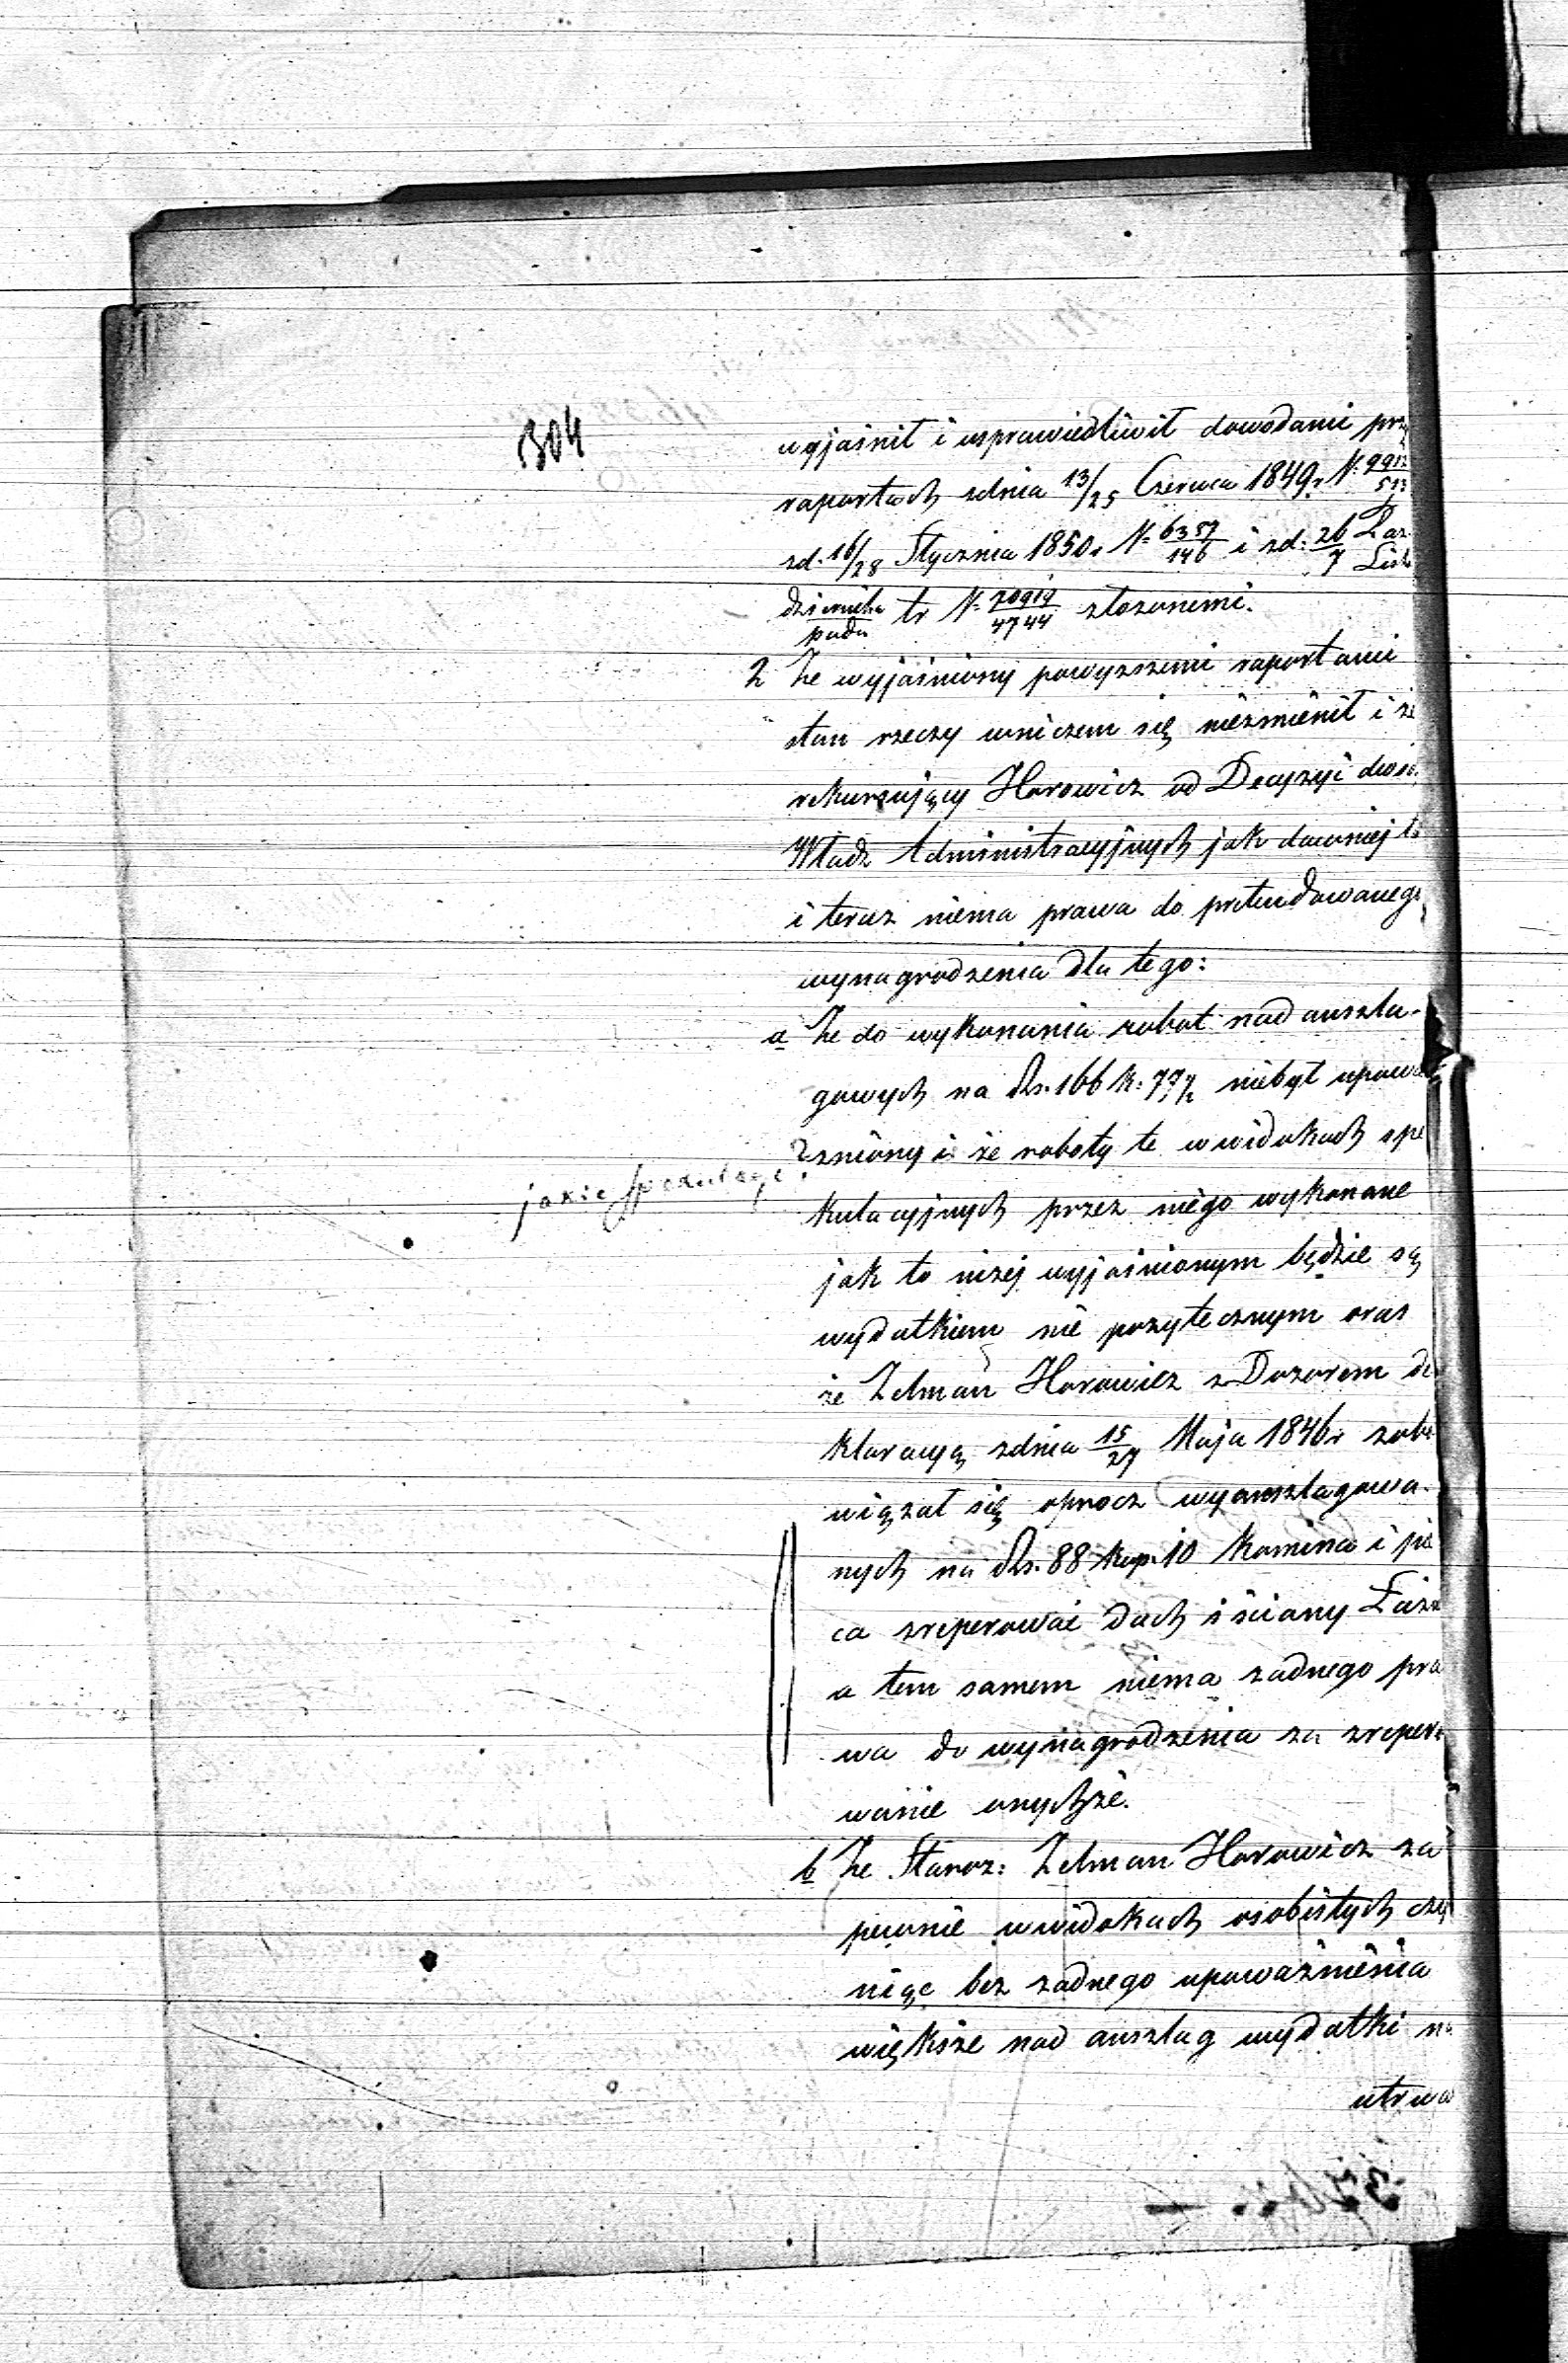 304
wyjaśnił i usprawiedliwił dowodami prz
raportach zdnia 13/25 Czerwca 1849 r N:
zd. 16/28 Stycznia 1850 r N: 6357/146 i zd: 26/7 Paz List
dziernika/pada tr N: 20919/4744 złożonemi.
2 Że wyjaśniony powyższemi raportami
stan rzeczy wniczem się niezmienił i że
rekursujący Horowicz od Decyzyi dwóch
Władz Administracyjnych jak dawniej
i teraz niema prawa do pretendowanego
wynagrodzenia dla tego:
a Że do wykonania robot nad anszla-
gowych na Rs. 166 k: 77½ niebył upowa
żniony i że roboty te wwidokach spe
jakie spekulacye?
kulacyjnych przez niego wykonane
jak to niżej wyjaśnionym będzie są
wydatkiem nie pożytecznym oraz
że Zelman Horowicz z Dozorem de
klaracyą zdnia 15/27 Maja 1846 r zobo
wiązał się oprocz wyanszlagowa-
nych na Rs. 88 kop. 10 komina i pie
ca zreperować dach i ściany Łaz
a tem samem niema żadnego pra
wa do wynagrodzenia za zreper
wanie onychże.
b Że Staroz: Zelman Horowicz za
pewnie wwidokach osobistych czy
niąc bez żadnego upoważnienia
większe nad anszlag wydatki na
utrwa